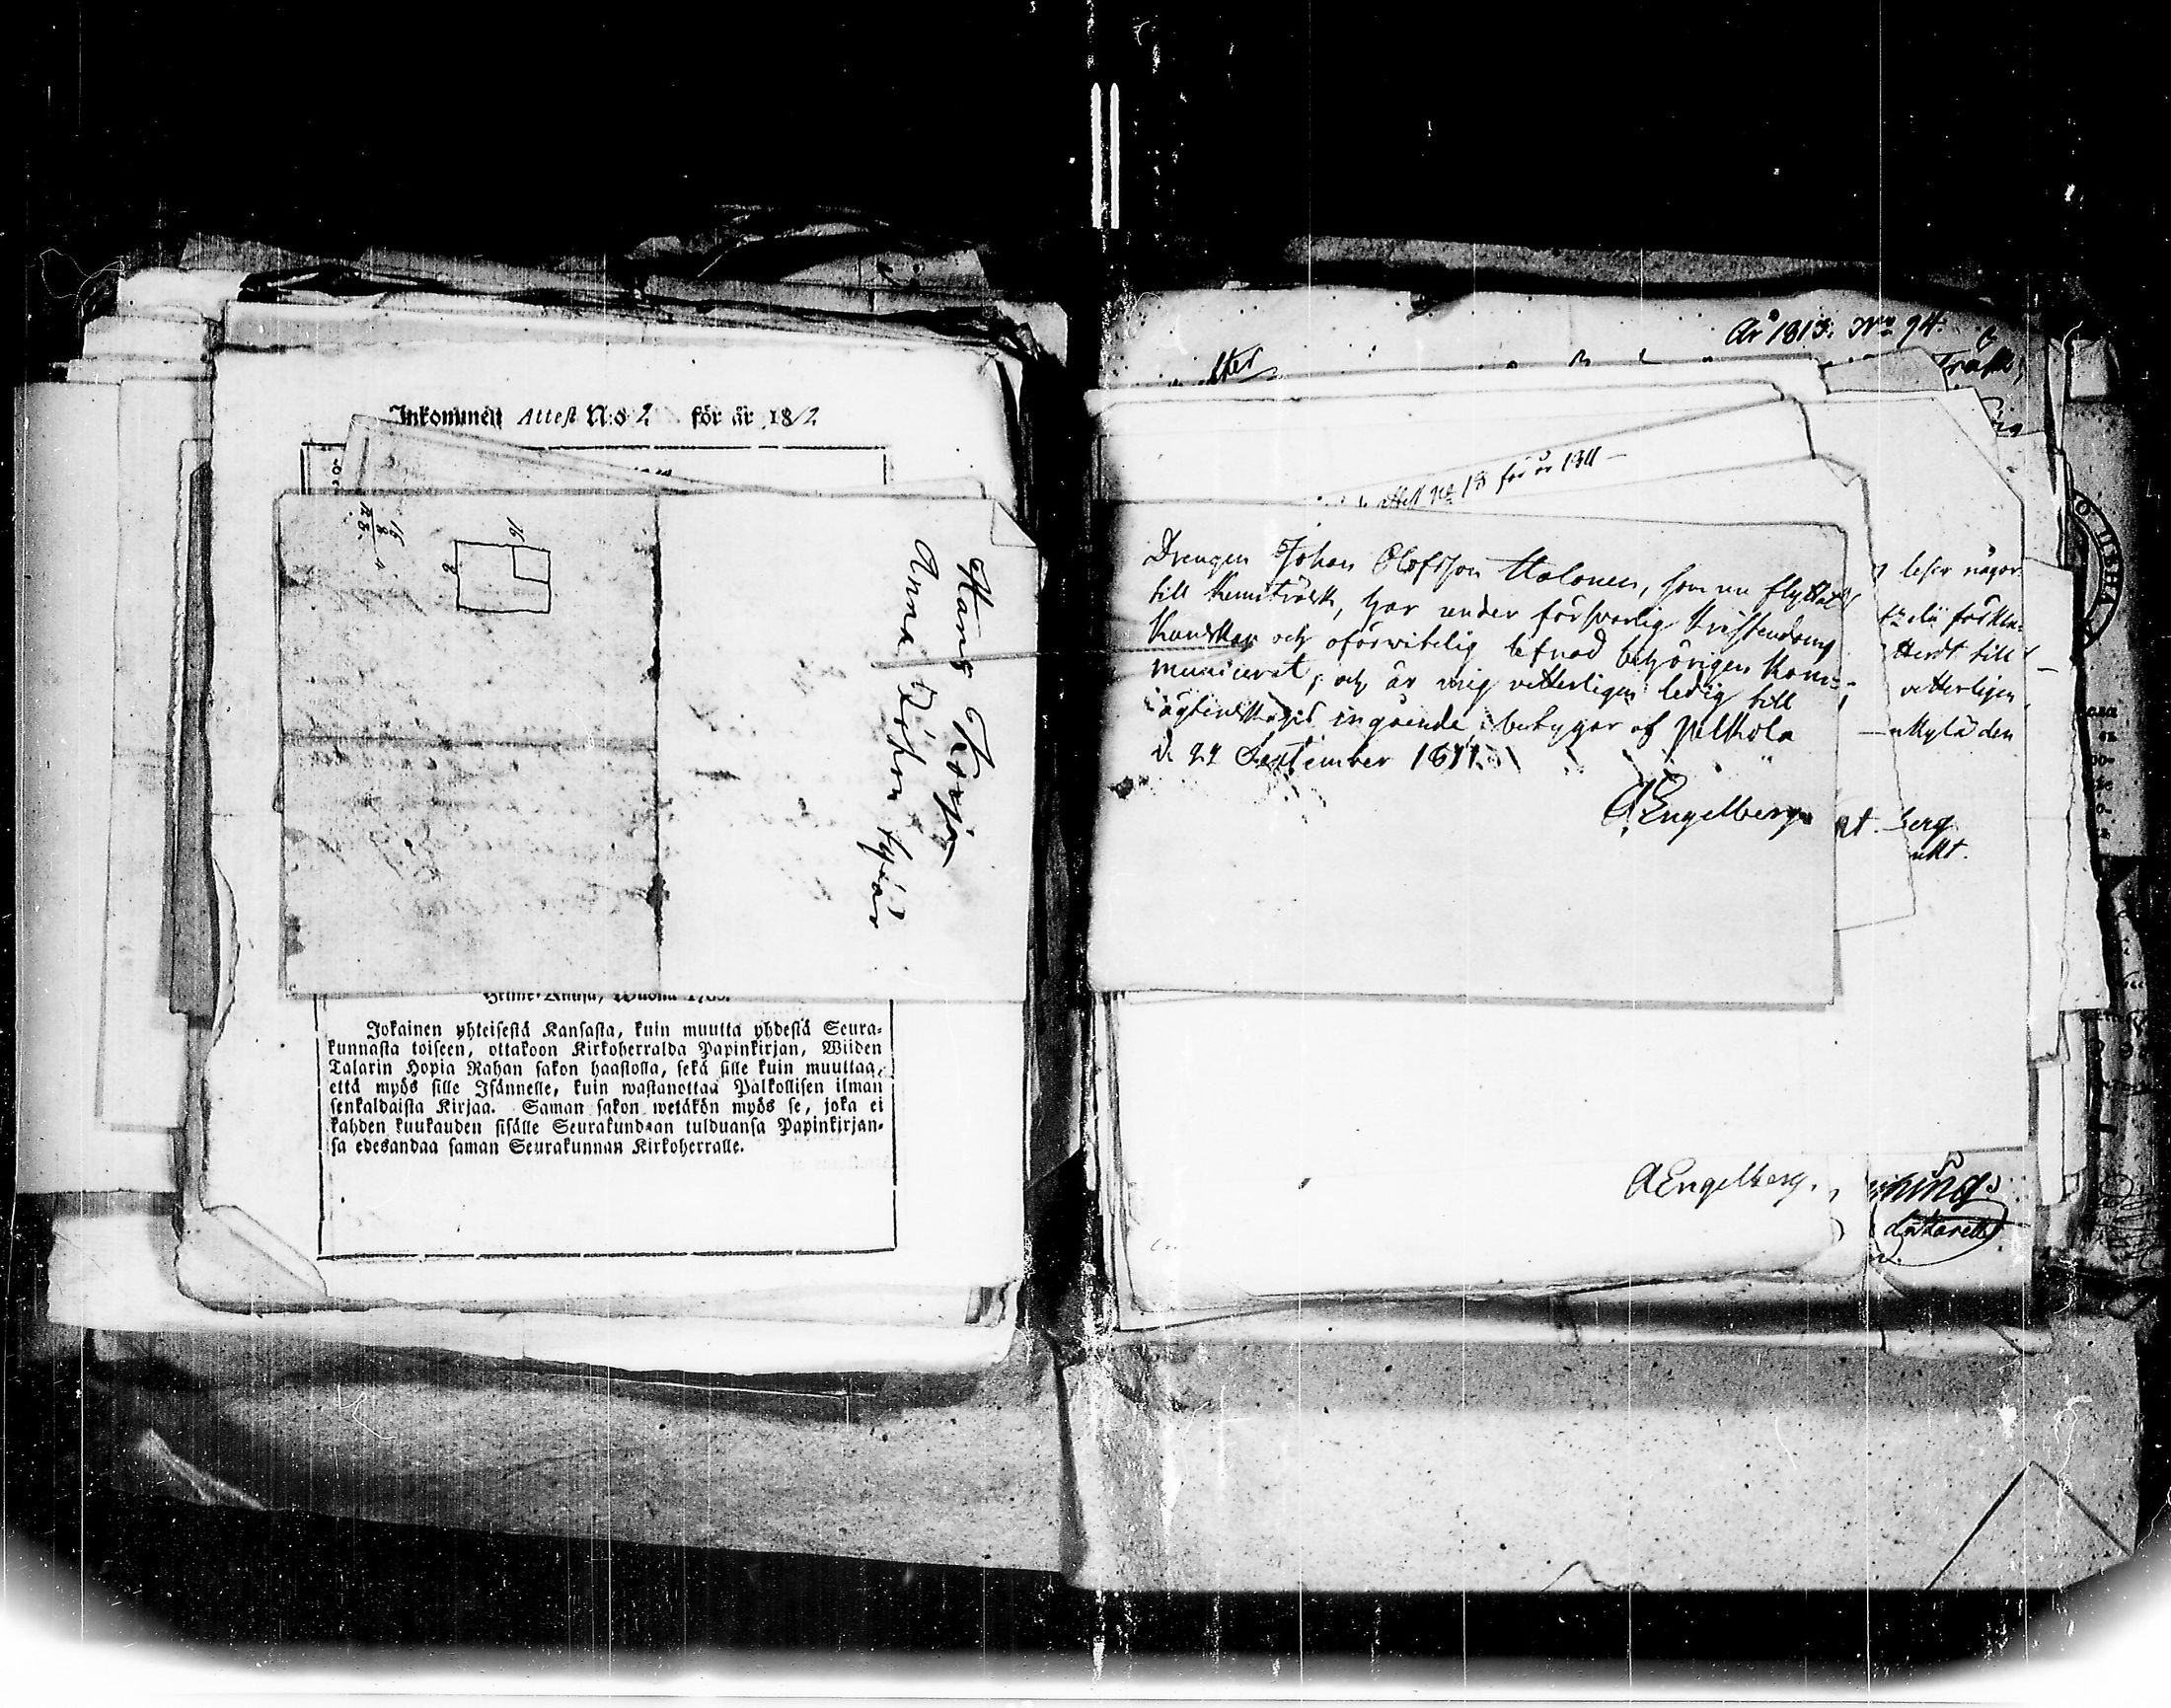 Inkommen Attest N:o 82 för år 1812
Hans Korje
Anna Johan tytär
16
8
128
16
8
Jokainen yhteisestä Kansasta, kuin muutta yhdestä Seura-
kunnasta toiseen, ottakoon Kirkoherralda Papinkirjan, Wiiden
Talarin Hopia Rahan sakon haastolla, sekä sille kuin muuttaa,
että myös sille Isännelle, kuin wastanottaa Palkollisen ilman
senkaldaista Kirjaa. Saman sakon wetäkön myös se, joka ei
kahden kuukauden sisälle Seurakundaan tulduansa Papinkirjan-
sa edesandaa saman Seurakunnan Kirkoherralle.
År 1813. No 94.
attest No 18 för år 1811 —
Drengen Johan Olofsson Halonen, som nu flyttat
till Kemiträsk, har under försvarlig Kristendoms
Kunskap och oförvitelig lefnad behörigen Kom-
municerat, och är mig vetterligen ledig till
ägtenskaps ingående, betygar af Pelkola
d. 22 September 1811.
A Engelberg
leser någor
vetterligen
kylä den
berg
A Engelberg.